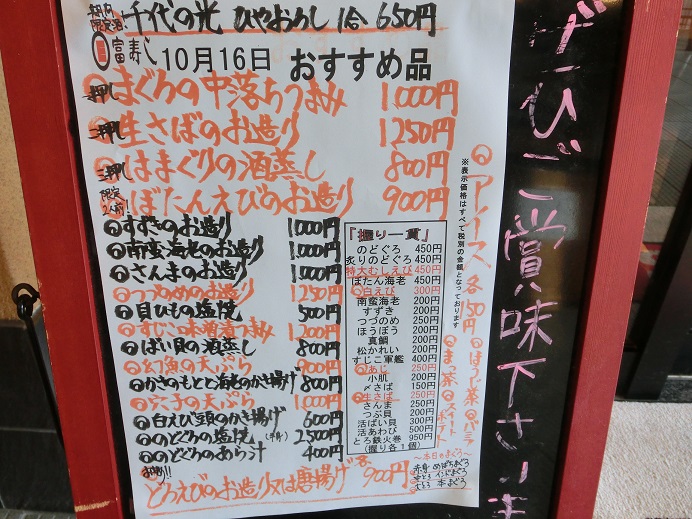 期間限定酒 千代の光 ひやおろし 1合 650円
富寿し 10月16日 おすすめ品
一押し まぐろの中落ちつまみ 1000円
二押し 生さばのお造り 1250円
三押し はまぐりの酒蒸し 800円
限定2人前! ぼたんえびのお造り 900円
すずきのお造り 1000円
南蛮海老のお造り 1000円
さんまのお造り 1000円
つづめのお造り 1250円
貝ひもの塩焼 500円
すじこ味噌漬つまみ 1200円
ばい貝の酒蒸し 800円
幻魚の天ぷら 900円
かきのもとと海老のかき揚げ 800円
穴子の天ぷら 1000円
白えび頭のかき揚げ 600円
のどぐろの塩焼(半身) 2500円
のどぐろのあら汁 400円
とろえびのお造り又は唐揚げ 各900円
「握り一貫」
のどぐろ 450円
炙りのどぐろ 450円
特大むしえび 450円
ぼたん海老 450円
白えび 300円
南蛮海老 200円
すずき 200円
つづめ 250円
ほうぼう 200円
真鯛 200円
松かれい 200円
すじこ軍艦 400円
あじ 250円
小肌 200円
〆さば 150円
生さば 250円
さんま 250円
つぶ貝 200円
活ばい貝 300円
活あわび 500円
とろ鉄火巻 950円
(握り各1個)
※表示価格はすべて税別の金額となっております
アイス 各150円
ほうじ茶 バニラ
まっ茶 スイートポテト
~本日のまぐろ~
赤身 めばちまぐろ
中とろ インドまぐろ
大とろ 本まぐろ
ぜひご賞味下さいま